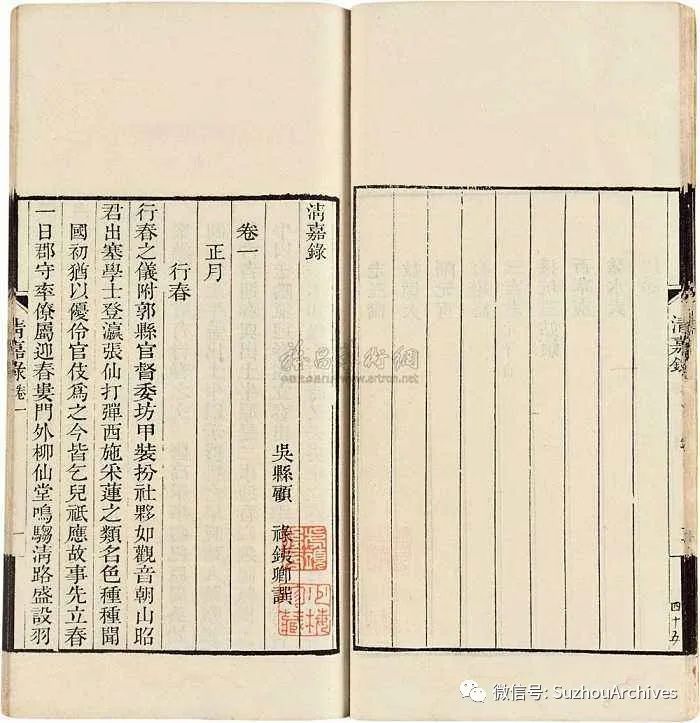 清嘉錄
四十五
清嘉錄
卷一
吳縣顧 祿鐵卿譔
正月
行春
行春之儀附郭縣官督委坊甲裝扮社夥如觀音朝山昭
君出塞學士登瀛張仙打彈西施采蓮之類名色種種聞
國初猶以優伶官伎爲之今皆乞兒祇應故事先立春
一日郡守率僚屬迎春婁門外柳仙堂鳴騶淸路盛設羽
清嘉錄卷一
一
微信号: SuzhouArchives